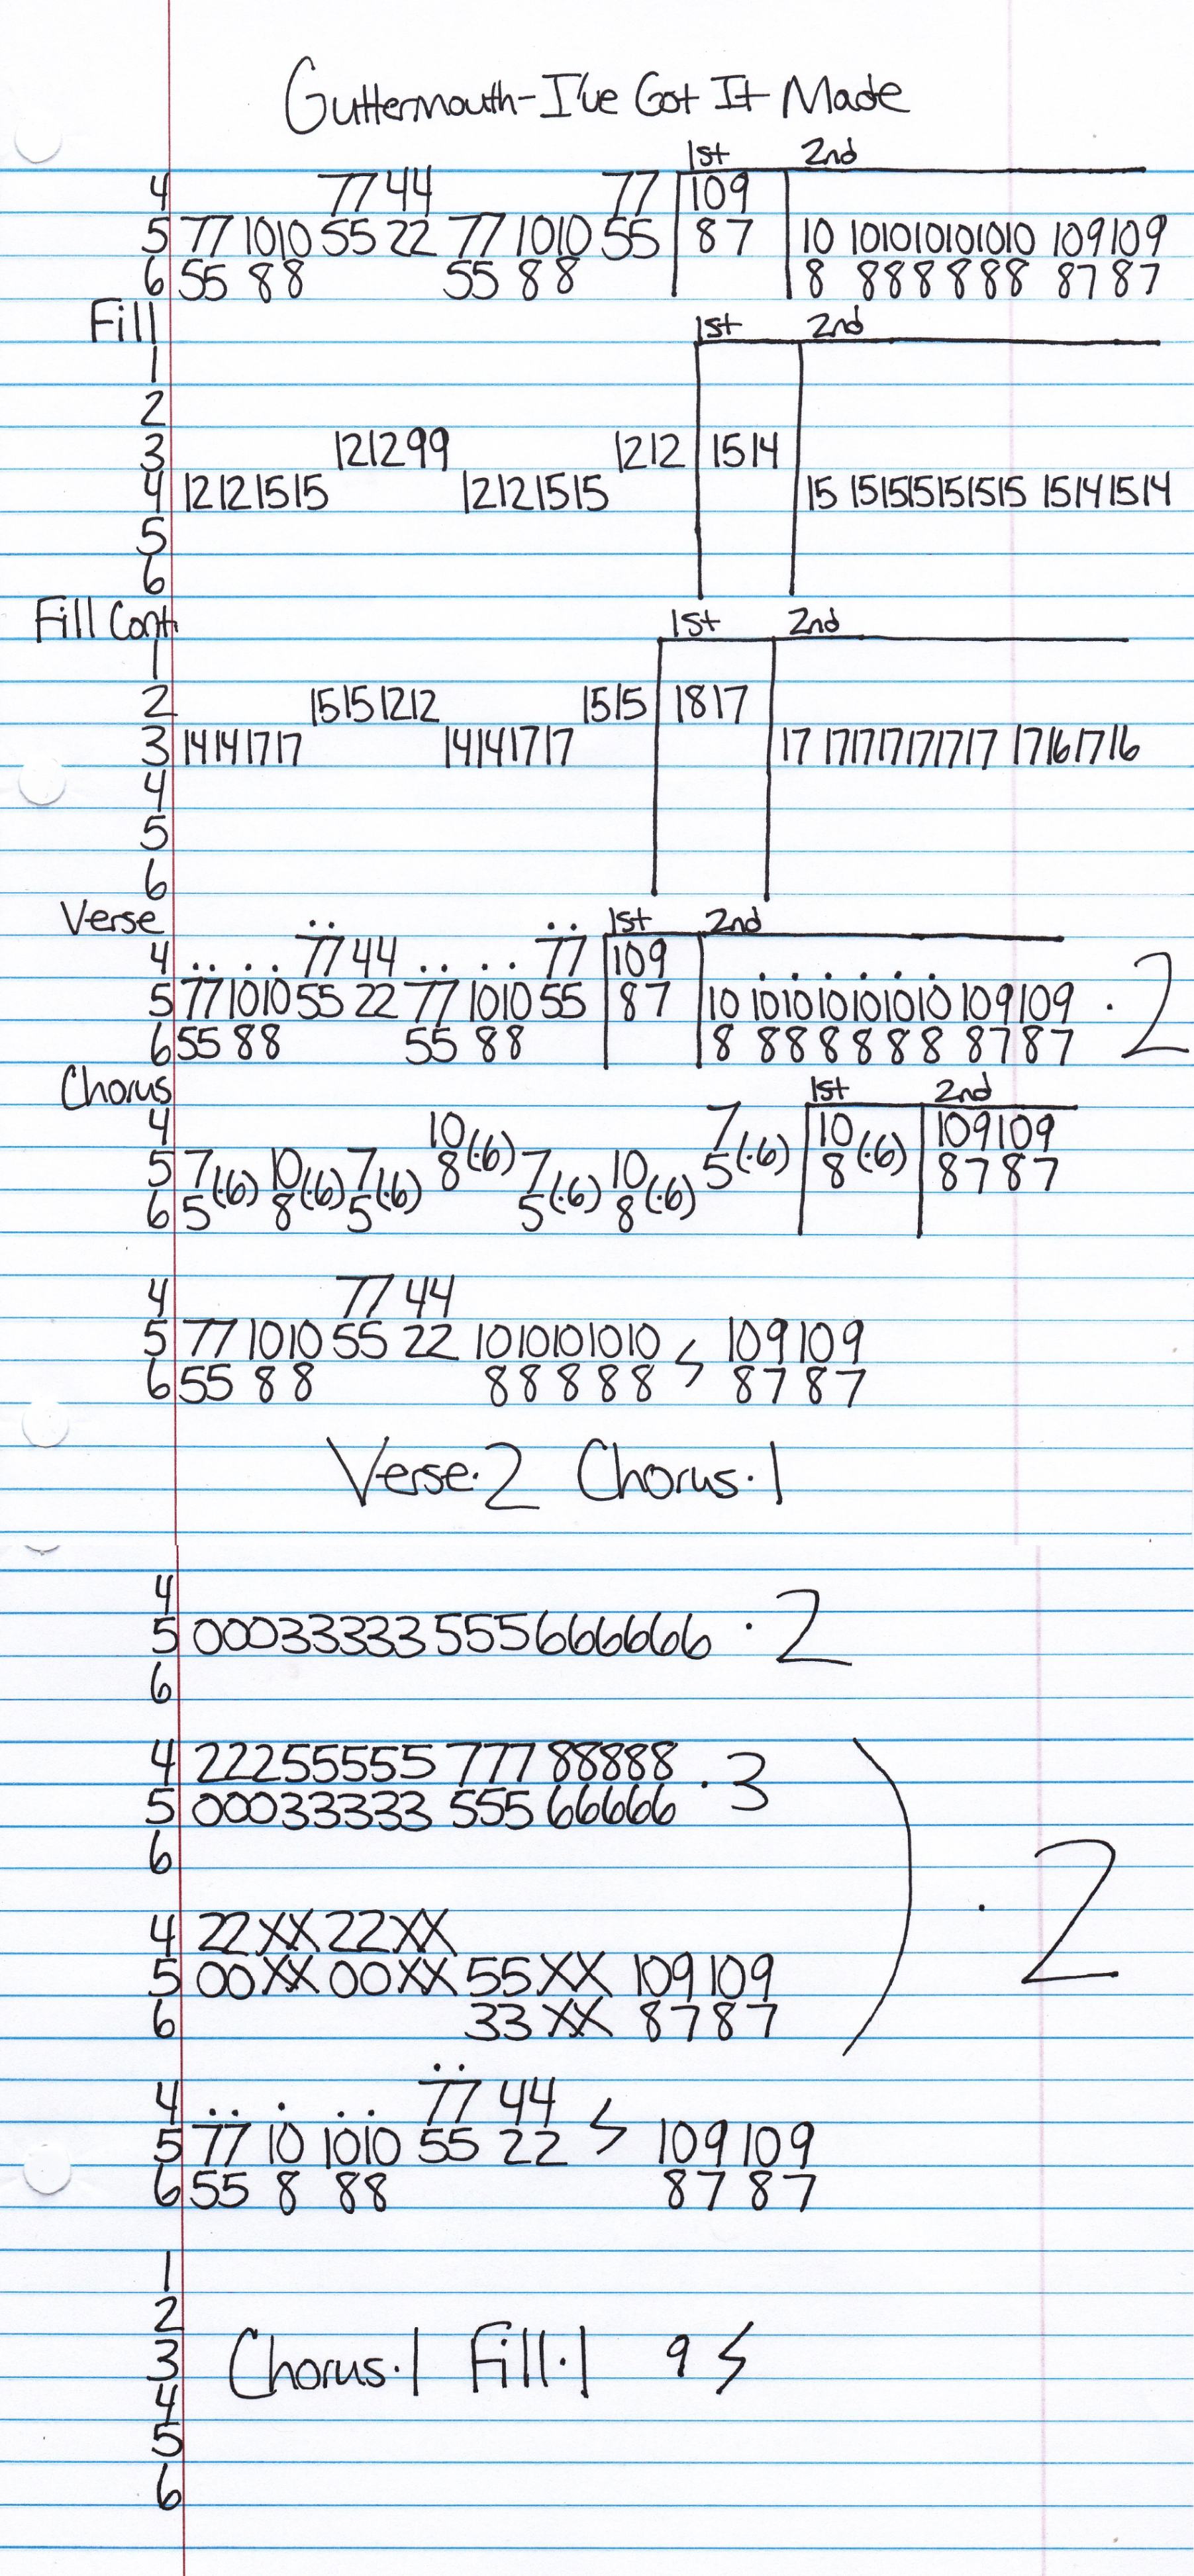 Guttermouth-I've Got It Made
1st 2nd
4 77 44 77 109
5 77 1010 55 22 77 1010 55 87 10 101010101010 109109
6 55 88 55 88 8 888888 8787
Fill 1st 2nd
1
2
3 121299 1212 1514
4 12121515 12121515 15 151515151515 15141514
5
6
Fill Cont 1st 2nd
1
2 15151212 1515 1817
3 14141717 14141717 17 171717171717 17161716
4
5
6
Verse .. .. 1st 2nd
4 .. .. 77 44 .. .. 77 109 ......
5 77 1010 55 22 77 1010 55 87 10 101010101010 109109 · 2
6 55 88 55 88 8 888888 8787
Chorus 1st 2nd
4 10 7 10 109109
5 7(·6) 10(·6) 7(·6) 8(·6) 7(·6) 10(·6) 5(·6) 8(·6) 87 87
6 5 8 5 5 8
4 77 44
5 77 1010 55 22 1010101010 109109
6 55 88 88888 ϟ 8787
Verse·2 Chorus·1
4
5 00033333555666666 · 2
6
4 22255555 777 88888 · 3
5 00033333 555 66666
6
2
4 22XX22XX
5 00XX00XX55XX 109109
6 33XX 8787
..
4 .. . .. 77 44 ϟ
5 77 10 1010 55 22 109109
6 55 8 88 8787
1
2
3 Chorus·1 Fill·1 9 ϟ
4
5
6